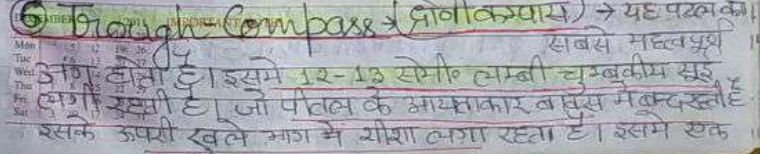 ⑤ Trough-Compass → (द्रोणीकम्पास) → यह पटल का
सबसे महत्वपूर्ण
अंग होता है। इसमे 12-13 सेमी० लम्बी चुम्बकीय सुई
लगी रहती है। जो पीतल के आयताकार बाक्स मे बन्द रहती है
इसके ऊपरी खुले भाग मे शीशा लगा रहता है। इसमे एक